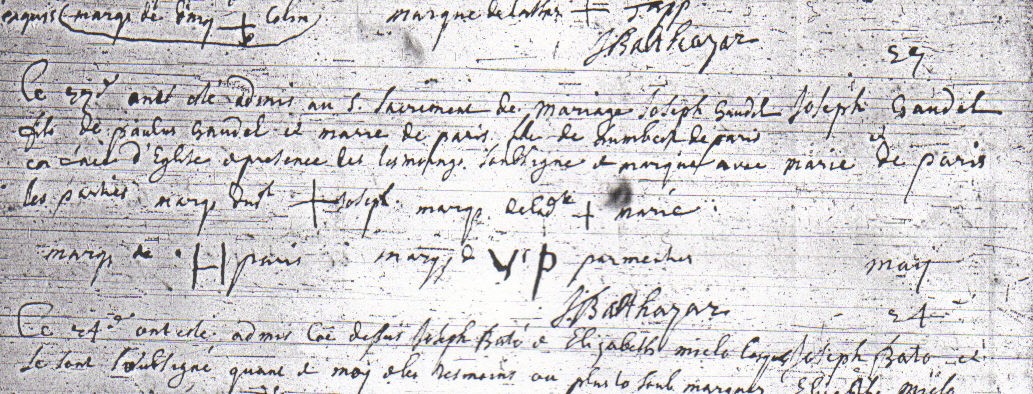 requis (marq de Colin marque de
JBalthazar
27
Ce 27e ont esté admis au S. Sacrement de Mariage Joseph Gaudel Joseph Gaudel
fils de paulus Gaudel et marie de paris fille de humbert de paris et
en face d'Eglise e presence des tesmoings soubsigne e marquez avec marie de paris
les parties marq dudt + Joseph marq de ladte + marie
marq de H paris marq de permentier may
JBalthazar 24
Ce 24e ont esté admis Coe dessus Joseph Bato e Elizabeth miclo lesquels Joseph Bato et
se sont soubsigné quant e moy e les tesmoins ou plus marquez Elizabeth miclo